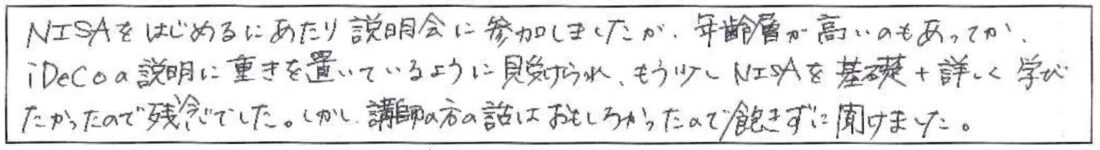 NISAをはじめるにあたり説明会に参加しましたが、年齢層が高いのもあってか、
iDeCoの説明に重きを置いているように見受けられ、もう少しNISAを基礎+詳しく学び
たかったので残念でした。しかし、講師の方の話はおもしろかったので飽きずに聞けました。